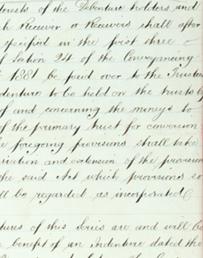 trusts of the Debenture holders and
h Receiver or Receivers shall after
specified in the first three
of Section 24 of the Conveyancing
1881 be paid over to the Trustees
denture to be held on the trusts
of and concerning the moneys to
of the primary trust for conversion
he foregoing provisions shall take
iation and extension of the provisions
the said Act which provisions so
ll be regarded as incorporated
tures of this Series are and will be
benefit of an Indenture dated the